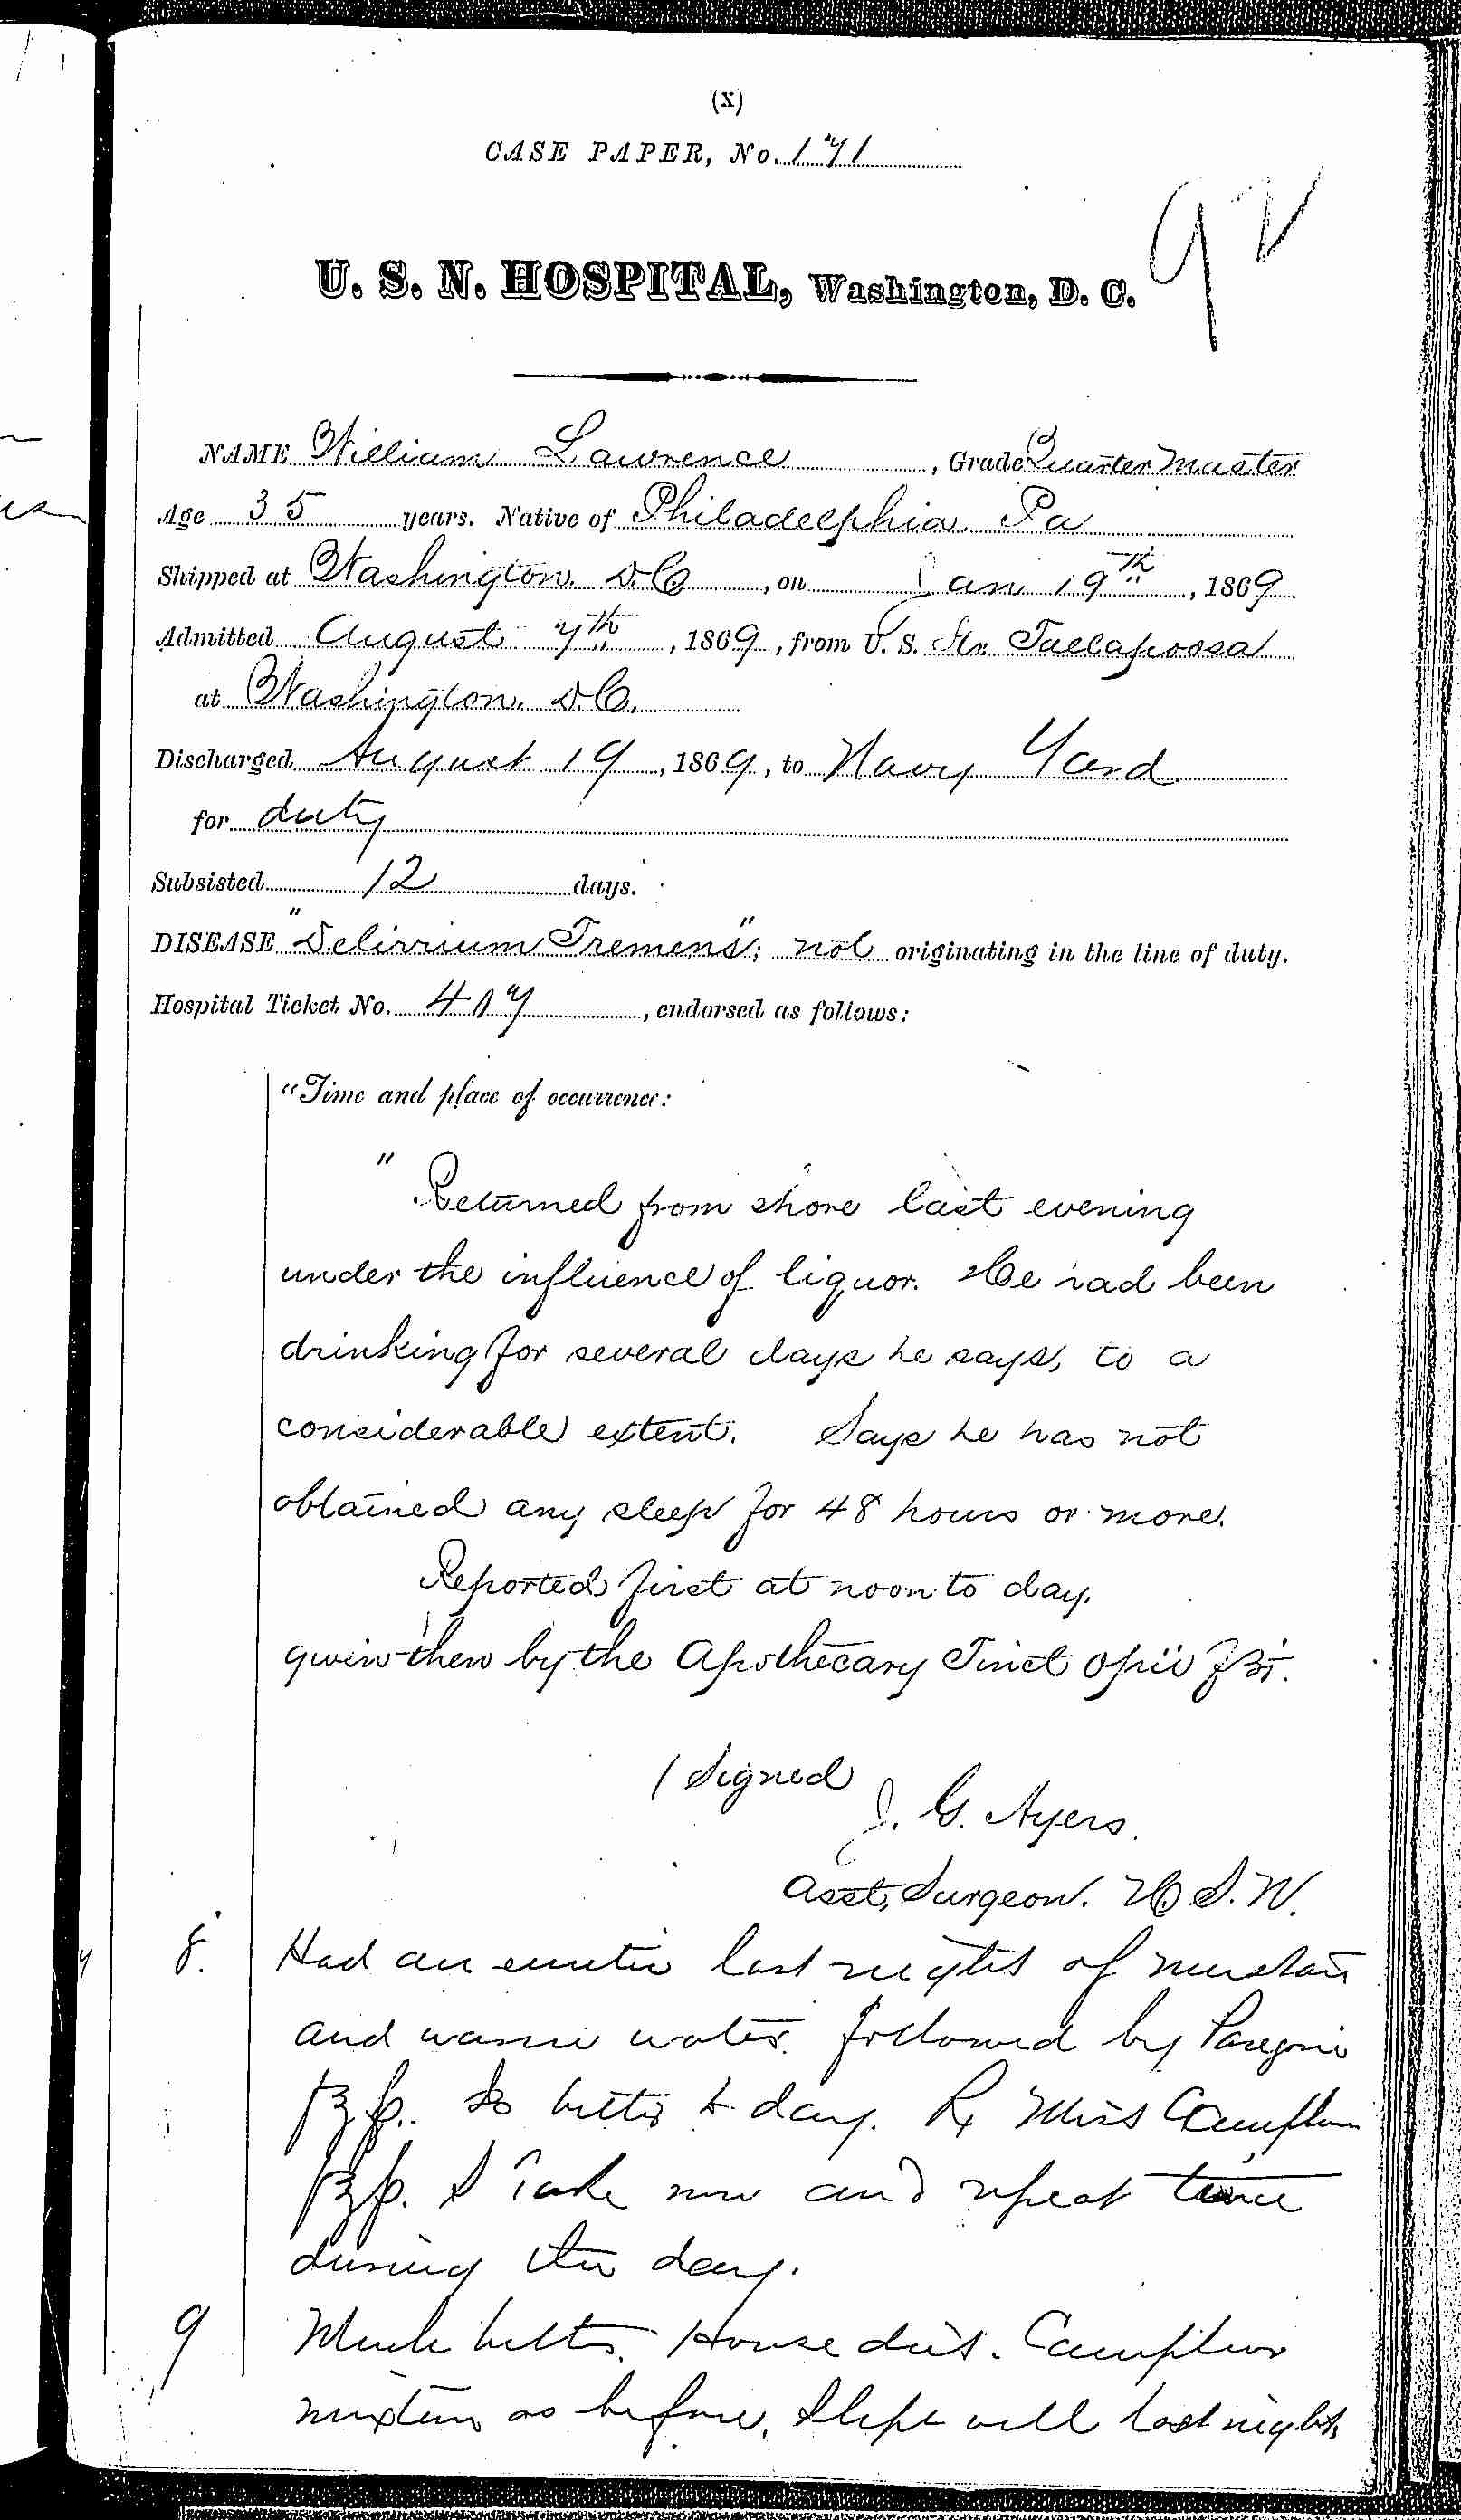 (X)
CASE PAPER, No. 171
92
U. S. N. HOSPITAL, Washington, D. C.
NAME William Lawrence, Grade Quarter Master
Age 35 years. Native of Philadelphia. Pa
Shipped at Washington. D.C., on Jan 19th, 1869
Admitted August 7th, 1869, from U. S. Str. Tallapoosa
at Washington. D.C.
Discharged August 19, 1869, to Navy Yard
for duty
Subsisted 12 days.
DISEASE "Delirrium Tremens"; not originating in the line of duty.
Hospital Ticket No. 417, endorsed as follows:
"Time and place of occurrence:
" Returned from shore last evening
under the influence of liquor. He had been
drinking for several days he says, to a
considerable extent. Says he has not
obtained any sleep for 48 hours or more.
Reported first at noon to day.
given then by the Apothecary Tinct Opii f℥i.
(Signed
J. G. Ayers.
Asst. Surgeon. U.S.N.
8. Had an emetic last night of mustard
and warm water. followed by Paregoric
f℥ſs. Is better to day. Rx Mist Camphor
f℥ſs. S Take now and repeat twice
during the day.
9 Much better. House diet. Camphor
mixture as before. Slept well last night